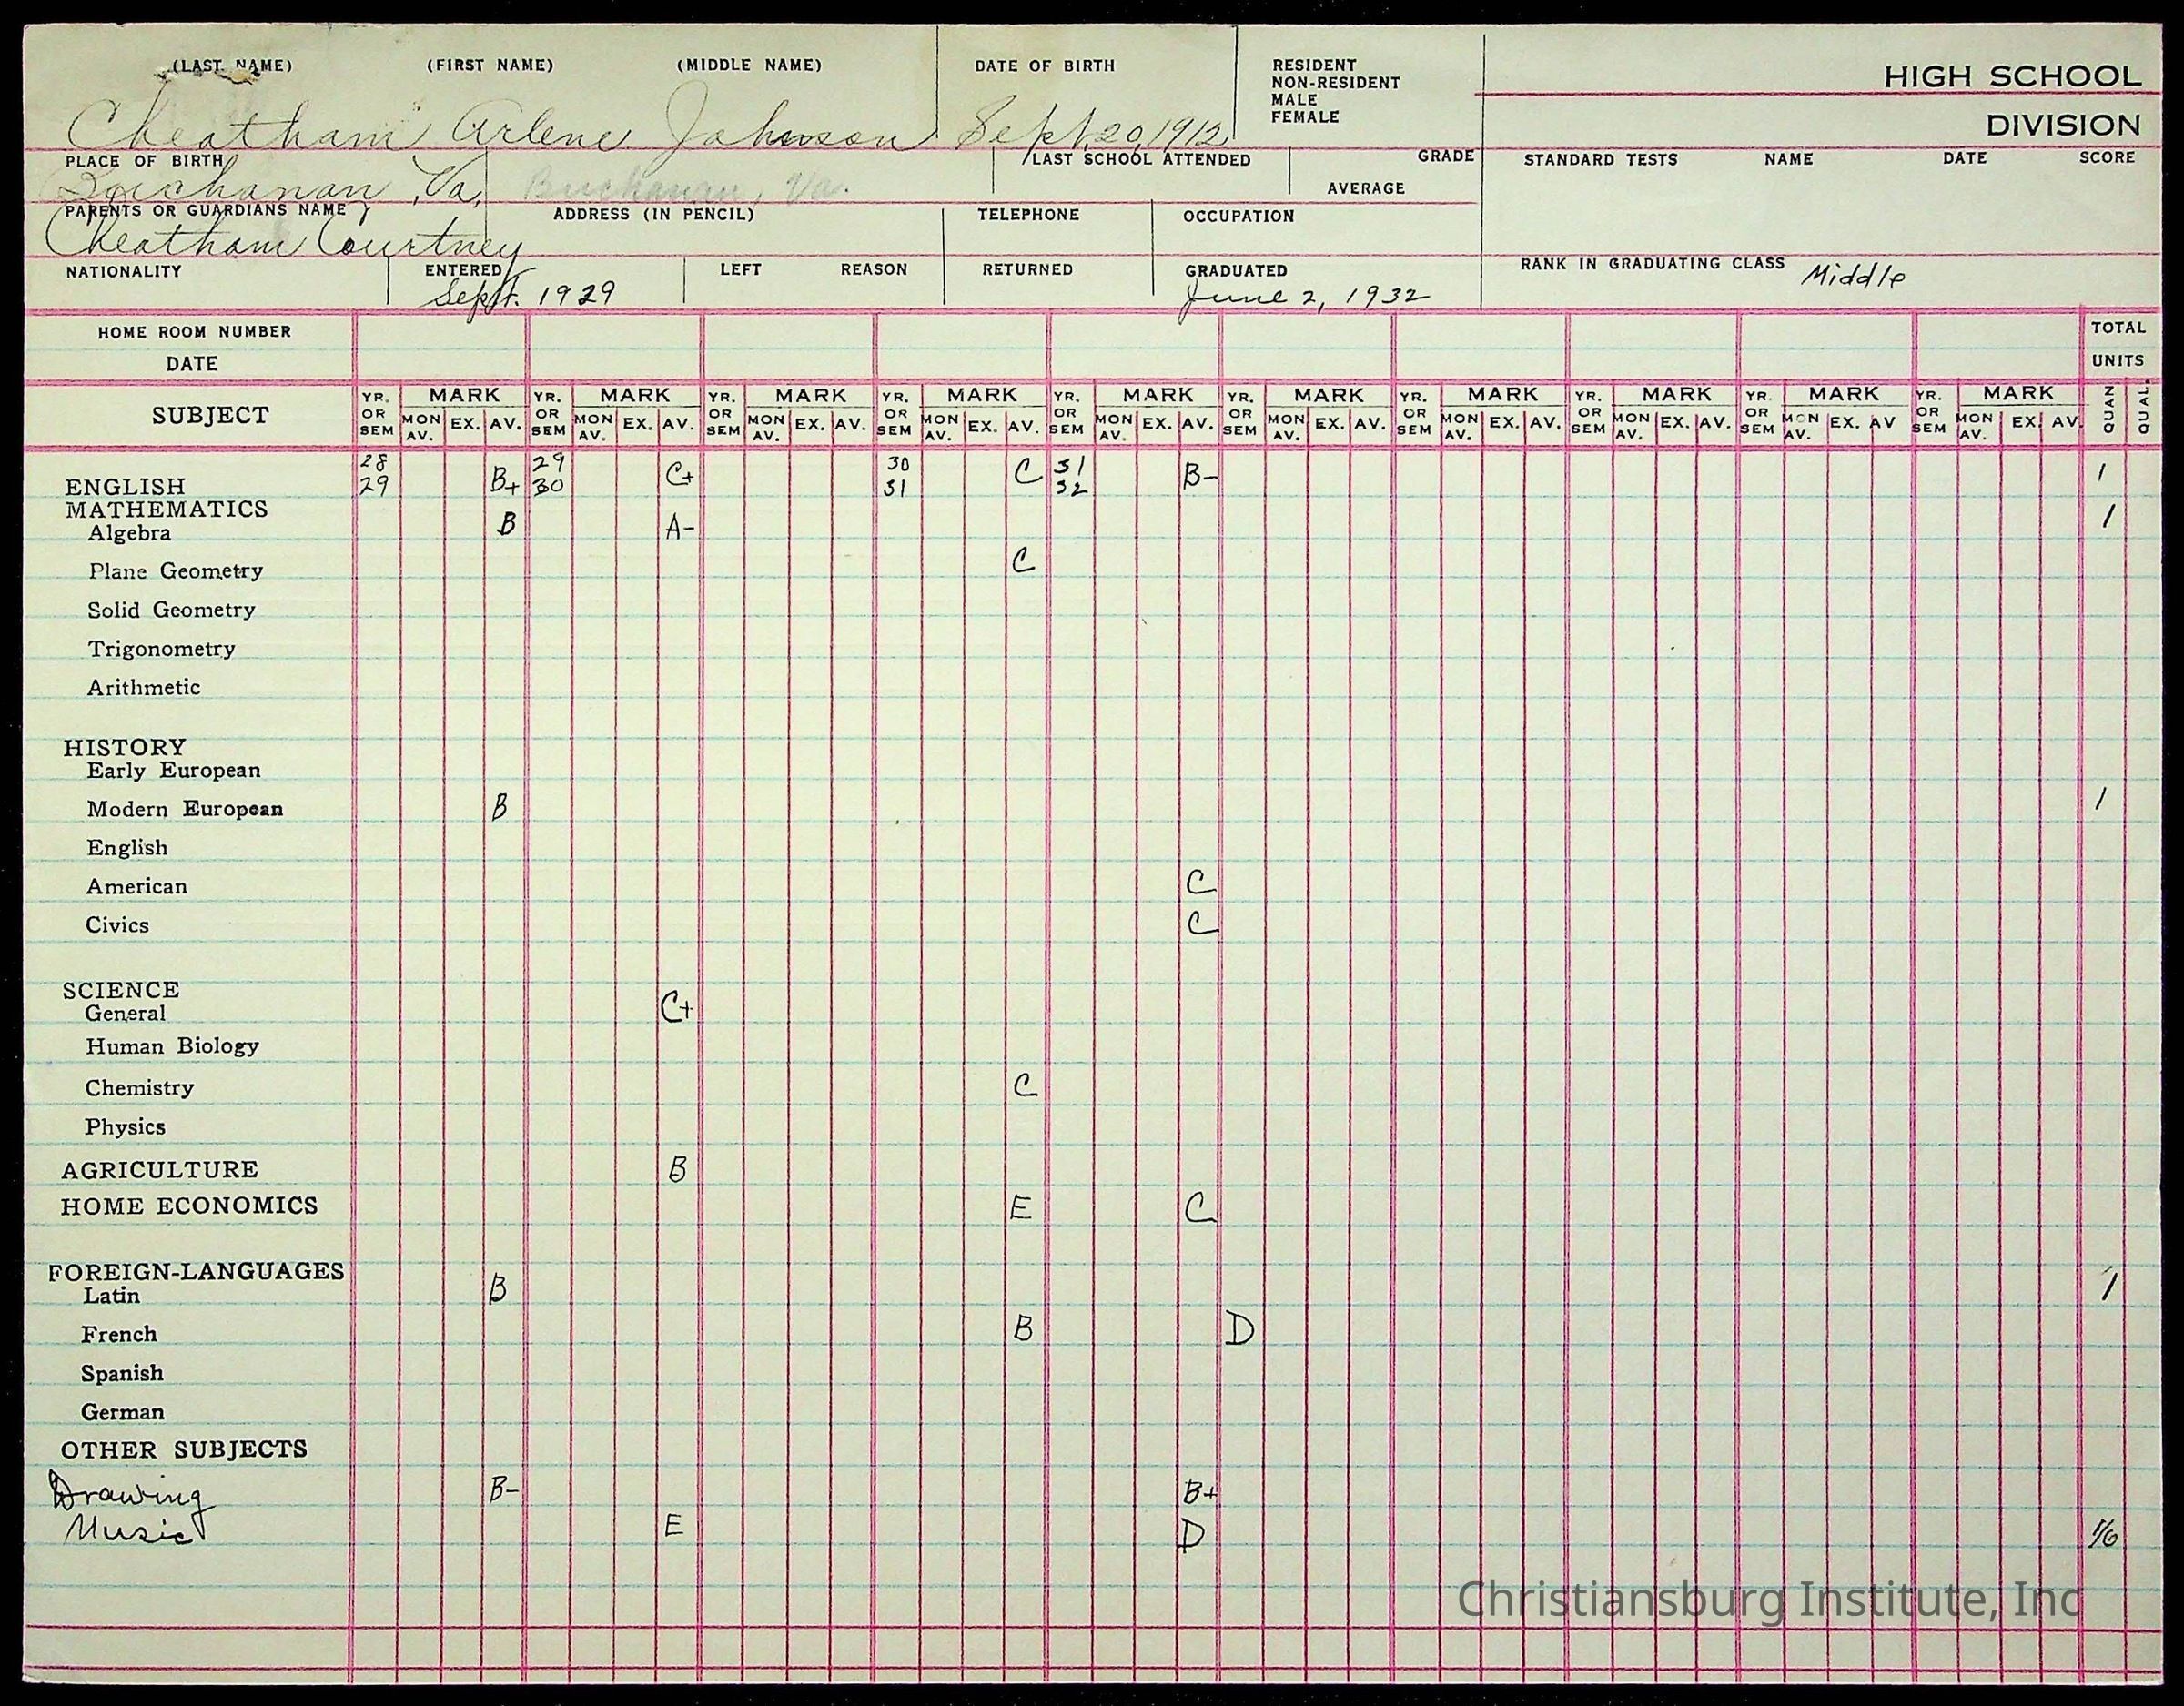 (LAST NAME) (FIRST NAME) (MIDDLE NAME) DATE OF BIRTH RESIDENT
NON-RESIDENT
MALE
FEMALE
HIGH SCHOOL
DIVISION
Cheatham Arlene Johnson Sept. 20, 1912
PLACE OF BIRTH LAST SCHOOL ATTENDED GRADE STANDARD TESTS NAME DATE SCORE
Buchanan, Va. Buchanan, Va. AVERAGE
PARENTS OR GUARDIANS NAME ADDRESS (IN PENCIL) TELEPHONE OCCUPATION
Cheatham Courtney
NATIONALITY ENTERED LEFT REASON RETURNED GRADUATED RANK IN GRADUATING CLASS Middle
Sept. 1929 June 2, 1932
HOME ROOM NUMBER TOTAL
DATE UNITS
SUBJECT YR. OR SEM MARK MON AV. EX. AV. YR. OR SEM MARK MON AV. EX. AV. YR. OR SEM MARK MON AV. EX. AV. YR. OR SEM MARK MON AV. EX. AV. YR. OR SEM MARK MON AV. EX. AV. YR. OR SEM MARK MON AV. EX. AV. YR. OR SEM MARK MON AV. EX. AV. YR. OR SEM MARK MON AV. EX. AV. YR. OR SEM MARK MON AV. EX. AV YR. OR SEM MARK MON AV. EX. AV. QUAN QUAL.
ENGLISH 28 29 B+ 29 30 C+ 30 31 C 31 32 B- 1
MATHEMATICS
Algebra B A- 1
Plane Geometry C
Solid Geometry
Trigonometry
Arithmetic
HISTORY
Early European
Modern European B 1
English
American C
Civics C
SCIENCE
General C+
Human Biology
Chemistry C
Physics
AGRICULTURE B
HOME ECONOMICS E C
FOREIGN-LANGUAGES
Latin B 1
French B D
Spanish
German
OTHER SUBJECTS
Drawing B- B+
Music E D 1/6
Christiansburg Institute, Inc